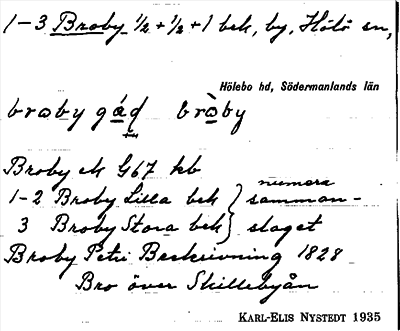 1-3 Broby ½ + ½ + 1 bek, by, Hölö sn,
Hölebo hd, Södermanlands län
broby gá̱d brò̱by
Broby ek G67 kb
1-2 Broby Lilla bek } numera
samman-
3 Broby Stora bek } slaget
Broby Petri Beskrivning 1828
Bro över Skillebyån
KARL-ELIS NYSTEDT 1935